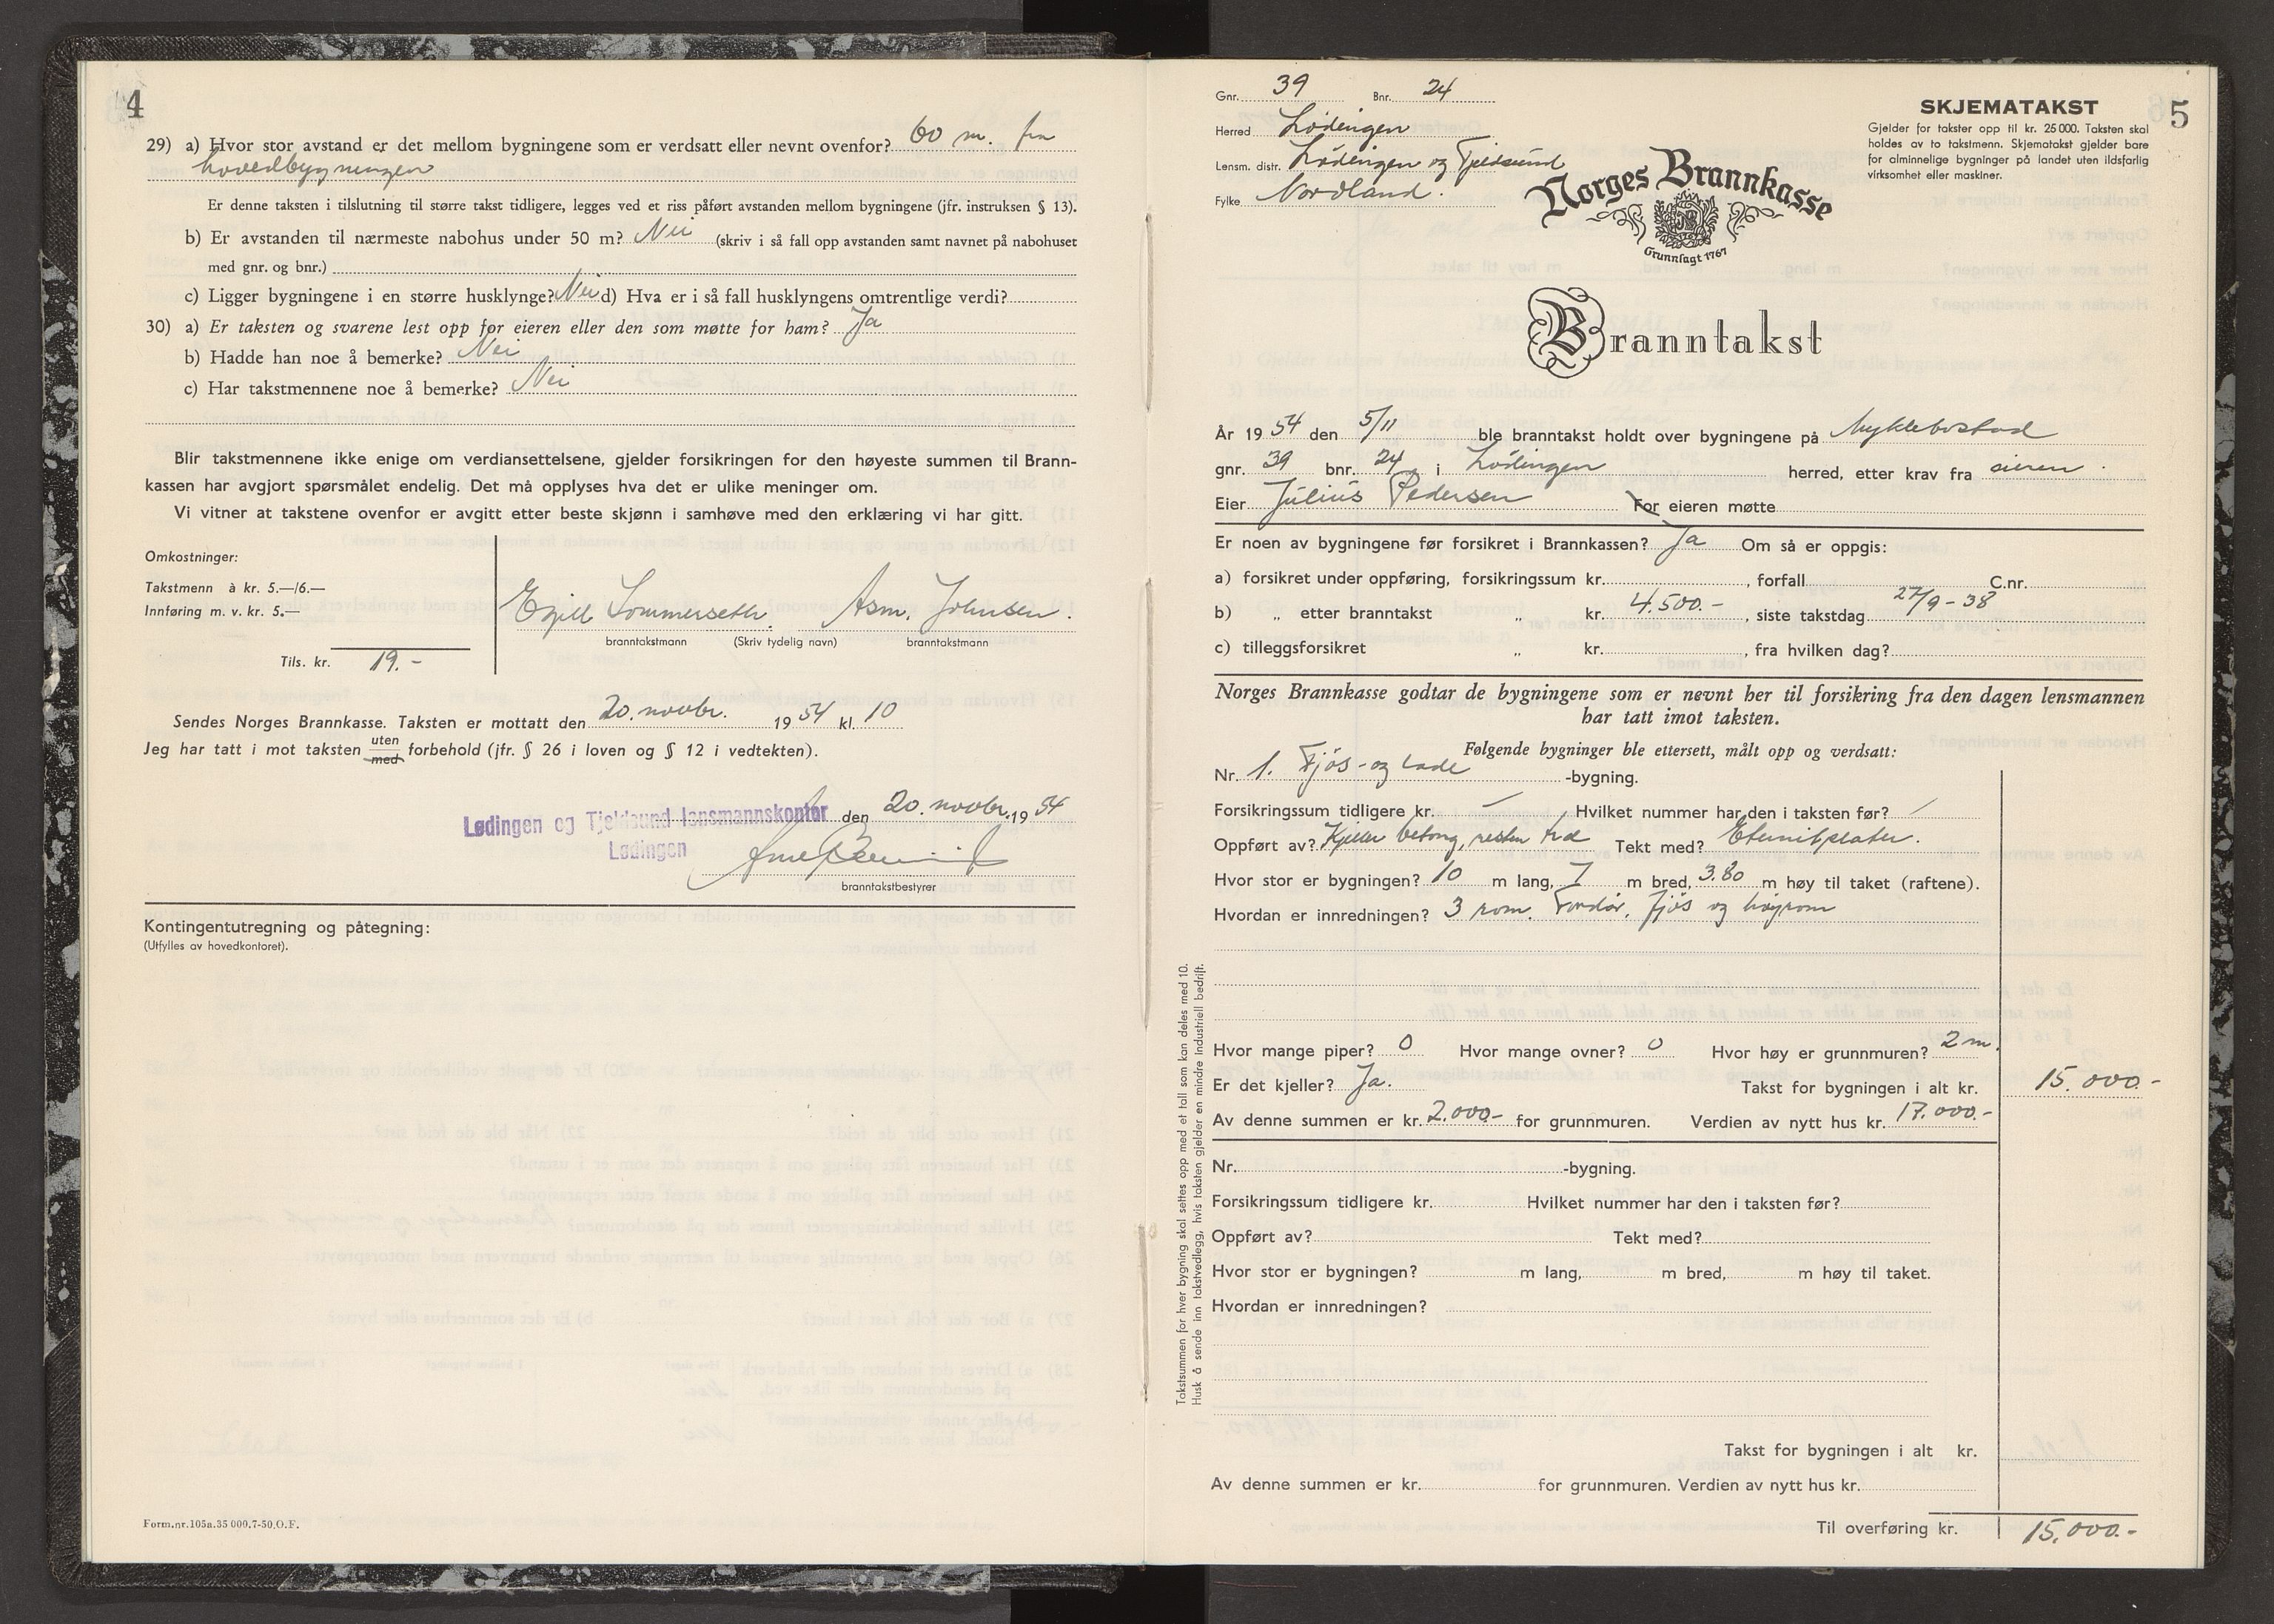 4
29) a) Hvor stor avstand er det mellom bygningene som er verdsatt eller nevnt ovenfor? 60 m. fra
hovedbygningen
Er denne taksten i tilslutning til større takst tidligere, legges ved et riss påført avstanden mellom bygningene (jfr. instruksen § 13).
b) Er avstanden til nærmeste nabohus under 50 m? Nei (skriv i så fall opp avstanden samt navnet på nabohuset
med gnr. og bnr.)
c) Ligger bygningene i en større husklynge? Nei d) Hva er i så fall husklyngens omtrentlige verdi?
30) a) Er taksten og svarene lest opp for eieren eller den som møtte for ham? Ja
b) Hadde han noe å bemerke? Nei
c) Har takstmennene noe å bemerke? Nei
Blir takstmennene ikke enige om verdiansettelsene, gjelder forsikringen for den høyeste summen til Brann-
kassen har avgjort spørsmålet endelig. Det må opplyses hva det er ulike meninger om.
Vi vitner at takstene ovenfor er avgitt etter beste skjønn i samhøve med den erklæring vi har gitt.
Omkostninger:
Takstmenn à kr. 5.—/6.—
Innføring m. v. kr. 5.—
Egill Sommerseth. Asm. Johnsen.
branntakstmann (Skriv tydelig navn) branntakstmann
Tils. kr. 19.-
Sendes Norges Brannkasse. Taksten er mottatt den 20. novbr. 1954 kl. 10
Jeg har tatt i mot taksten uten med forbehold (jfr. § 26 i loven og § 12 i vedtekten).
Lødingen og Tjeldsund lensmannskontor den 20. novbr. 1954
Lødingen
branntakstbestyrer
Kontingentutregning og påtegning:
(Utfylles av hovedkontoret).
Form.nr.105a.35 000.7-50.O.F.
5
Gnr. 39 Bnr. 24
Herred Lødingen
Lensm. distr. Lødingen og Tjeldsund
Fylke Nordland.
SKJEMATAKST
Gjelder for takster opp til kr. 25 000. Taksten skal
holdes av to takstmenn. Skjematakst gjelder bare
for alminnelige bygninger på landet uten ildsfarlig
virksomhet eller maskiner.
Norges Brannkasse
Grunnlagt 1767
Branntakst
År 1954 den 5/11 ble branntakst holdt over bygningene på Myklebostad
gnr. 39 bnr. 24 i Lødingen herred, etter krav fra eieren.
Eier Julius Pedersen For eieren møtte
Er noen av bygningene før forsikret i Brannkassen? Ja Om så er oppgis:
a) forsikret under oppføring, forsikringssum kr. , forfall C.nr.
b) „ etter branntakst „ kr. 4.500.- , siste takstdag 27/9-38
c) tilleggsforsikret „ kr. , fra hvilken dag?
Norges Brannkasse godtar de bygningene som er nevnt her til forsikring fra den dagen lensmannen
har tatt imot taksten.
Følgende bygninger ble ettersett, målt opp og verdsatt:
Nr. 1. Fjøs- og lade -bygning.
Forsikringssum tidligere kr. - Hvilket nummer har den i taksten før? -
Oppført av? Kjeller betong, resten tred Tekt med? Eternitplater.
Hvor stor er bygningen? 10 m lang, 7 m bred, 3.80 m høy til taket (raftene).
Hvordan er innredningen? 3 rom. Fordør, fjøs og høyrom
Takstsummen for hver bygning skal settes opp med et tall som kan deles med 10.
Husk å sende inn takstvedlegg, hvis taksten gjelder en mindre industriell bedrift.
Hvor mange piper? 0 Hvor mange ovner? 0 Hvor høy er grunnmuren? 2 m.
Er det kjeller? Ja. Takst for bygningen i alt kr. 15.000.-
Av denne summen er kr. 2.000.- for grunnmuren. Verdien av nytt hus kr. 17.000.-
Nr. -bygning.
Forsikringssum tidligere kr. Hvilket nummer har den i taksten før?
Oppført av? Tekt med?
Hvor stor er bygningen? m lang, m bred, m høy til taket.
Hvordan er innredningen?
Takst for bygningen i alt kr.
Av denne summen er kr. for grunnmuren. Verdien av nytt hus kr.
Til overføring kr. 15.000.-